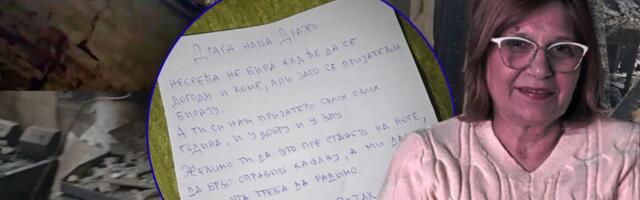 ДРАГА НАША ДРАЖО
НЕСРЕЋА НЕ БИРА КАД ЋЕ ДА СЕ
ДОГОДИ И КОМЕ, АЛИ ЗАТО СЕ ПРИЈАТЕЉИ
БИРАЈУ.
А ТИ СИ НАМ ПРИЈАТЕЉ СВИХ ОВИХ
ГОДИНА, И У ДОБРУ И У ЗЛУ.
ЖЕЛИМО ТИ ДА ШТО ПРЕ СТАНЕШ НА НОГЕ,
ДА БРЗО СПРАВИШ КАФАНУ, А МИ
ТРЕБА ДА РАДИМО.